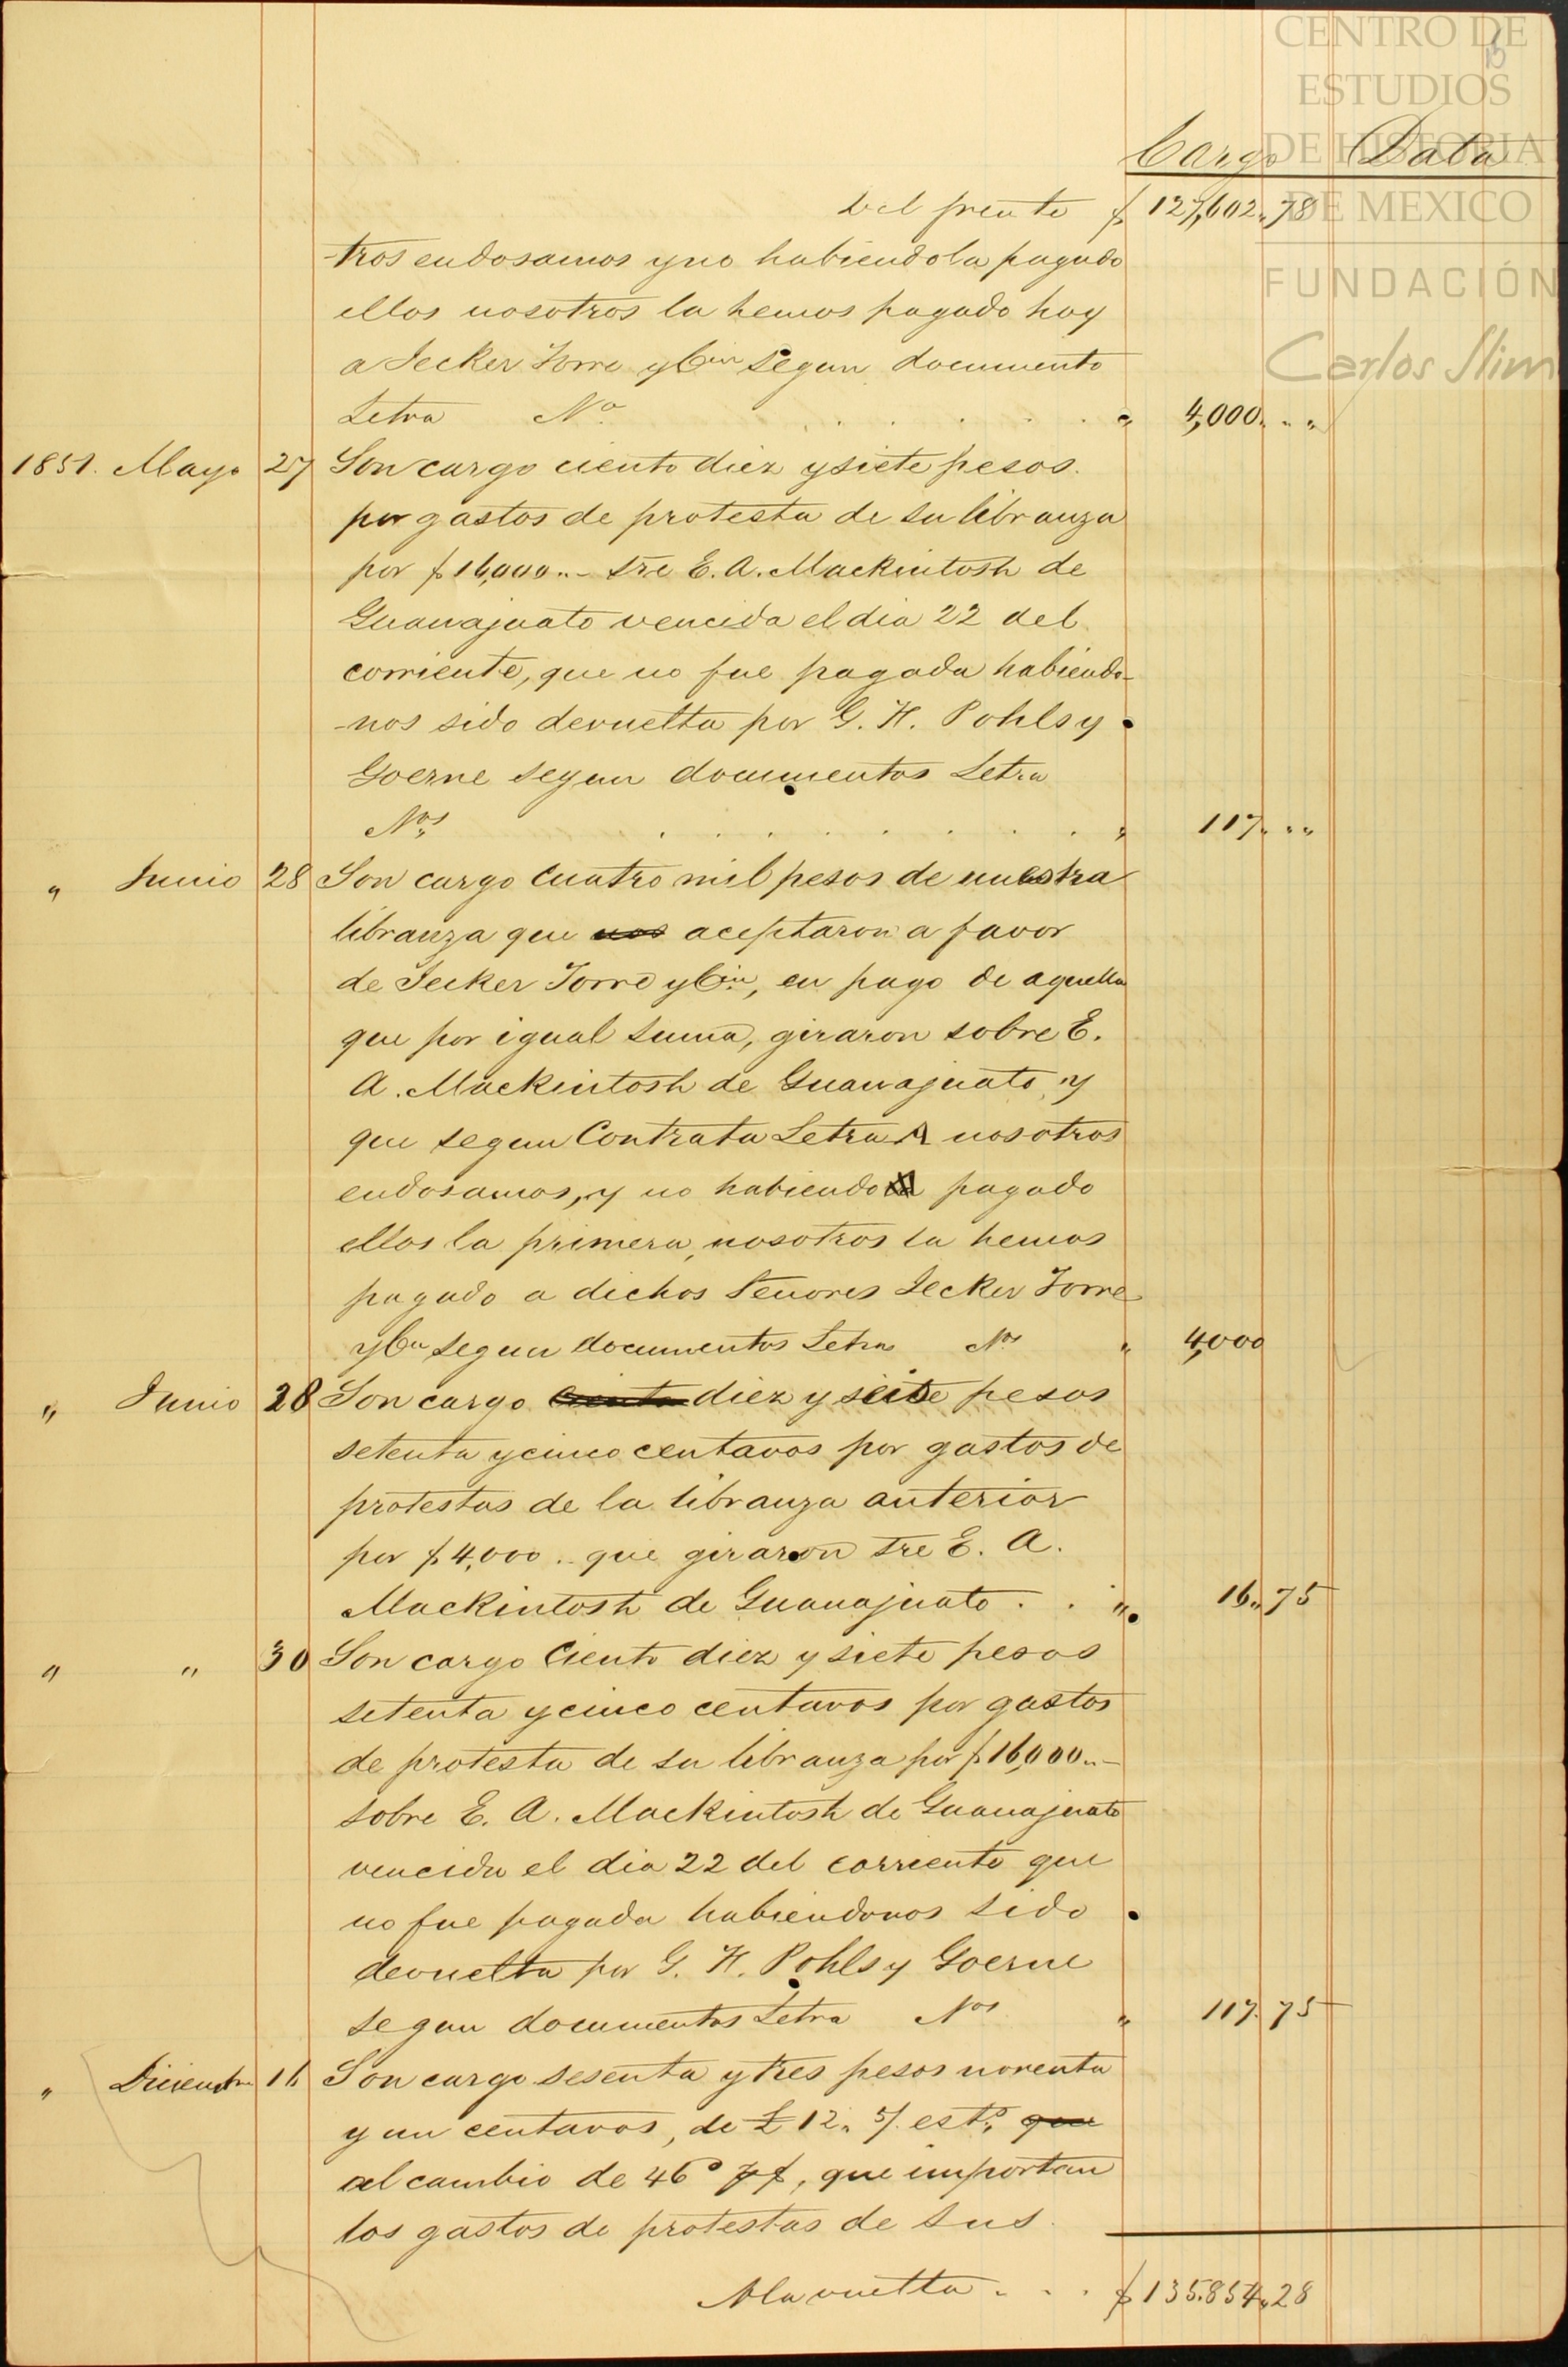 CENTRO DE
ESTUDIOS
DE HISTORIA
DE MEXICO
FUNDACIÓN
Carlos Slim
Cargo Data
Del frente $ 127,602.. 78
-tros endosamos y no habiendola pagado
ellos nosotros la hemos pagado hoy
a Jecker Torre y Cia segun documento
Letra No . . . . . . " 4,000. . "
1851. Mayo 27 Son cargo ciento diez y siete pesos
por gastos de protesta de su libranza
por $16,000..- sre E. A. Mackintosh de
Guanajuato vencida el dia 22 del
corriente, que no fue pagada habiendo-
-nos sido devuelta por G. H. Pohls y
Goerne segun documentos Letra
Nos . . . . . . . . " 117. . "
" Junio 28 Son cargo Cuatro mil pesos de nuestra
libranza que nos aceptaron a favor
de Jecker Torre y Cia, en pago de aquella
que por igual suma, giraron sobre E.
A. Mackintosh de Guanajuato, y
que segun Contrata Letra A nosotros
endosamos, y no habiendo la pagado
ellos la primera, nosotros la hemos
pagado a dichos Señores Jecker Torre
y Cia segun documentos Letra Nos " 4,000
" Junio 28 Son cargo Ciento diez y seis pesos
setenta y cinco centavos por gastos de
protestas de la libranza anterior
por $4,000.. que giraron sre E. A.
Mackintosh de Guanajuato . . " 16.. 75
" " 30 Son cargo Ciento diez y siete pesos
setenta y cinco centavos por gastos
de protesta de su libranza por $16,000..-
sobre E. A. Mackintosh de Guanajuato
vencida el dia 22 del corriente que
no fue pagada habiendonos sido
devuelta por G. H. Pohls y Goerne
segun documentos Letra Nos " 117. 75
" Diciembre 16 Son cargo sesenta y tres pesos noventa
y un centavos, de £ 12.. 5/. est.. que
al cambio de 46 , que importan
los gastos de protestas de sus
A la vuelta . . . $ 135.854..28